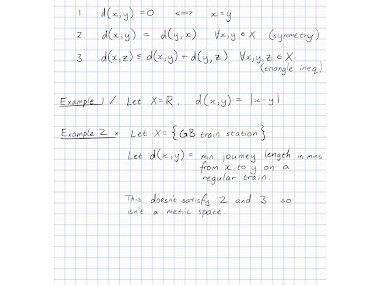 1 d(x,y) = 0 <=> x=y
2 d(x,y) = d(y,x) ∀x,y ∈ X (symmetry)
3 d(x,z) ≤ d(x,y) + d(y,z) ∀x,y,z ∈ X
(triangle ineq)
Example 1 / Let X=R, d(x,y) = |x-y|
Example 2 x Let X = {GB train station}
Let d(x,y) = min journey length in mins
from x to y on a
regular train.
This doesnt satisfy 2 and 3 so
isn't a metric space.